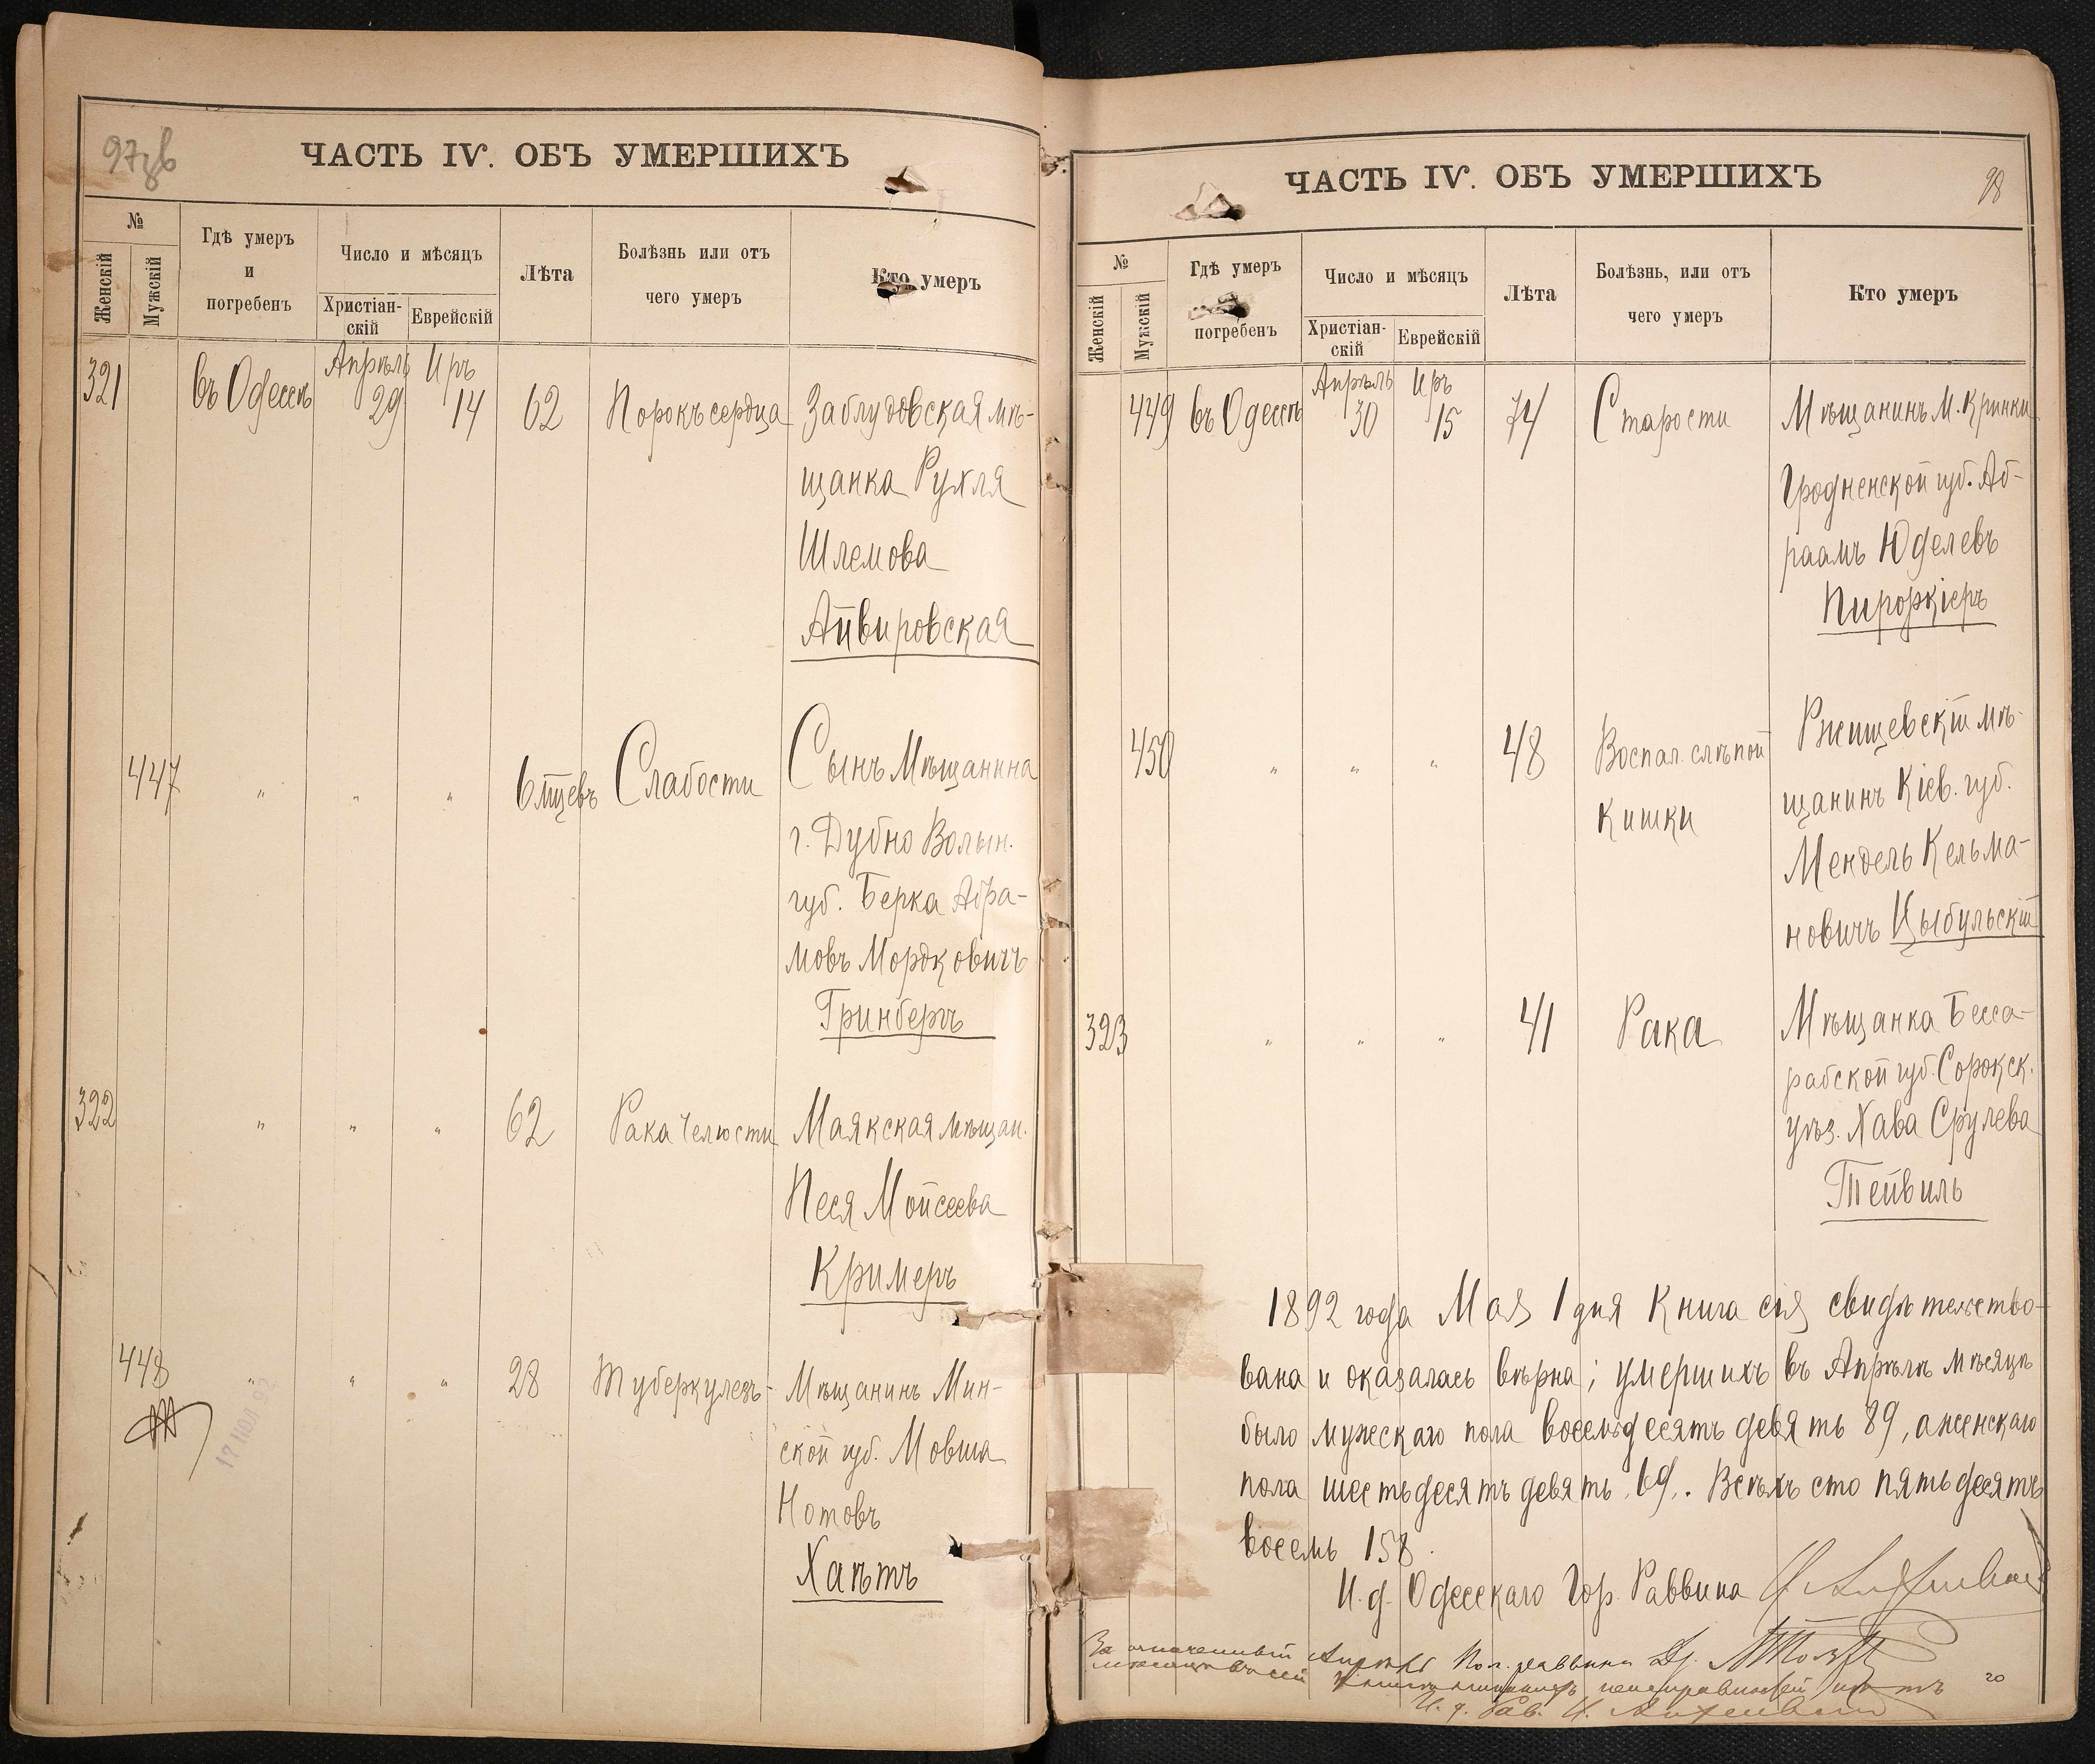 97 зв
ЧАСТЬ IV. ОБЪ УМЕРШИХЪ
№
Женскій
Мужскій
Гдѣ умеръ
и
погребенъ
Число и мѣсяцъ
Христіан-
скій
Еврейскій
Лѣта
Болѣзнь или отъ
чего умеръ
Кто умеръ
Апрѣль Иръ
321 въ Одессѣ 29 14 62 Порокъ сердца Заблудовская мѣ-
щанка Рухля
Шлемова
Айвировская
447 " " " 6 мцевъ Слабости Сынъ Мѣщанина
г. Дубно Волын.
губ. Берка Абра-
мовъ Мордковичъ
Гринбергъ
322 " " " 62 Рака Челюсти Маякская мѣщан.
Песя Мойсеева
Кримеръ
448 " " " 28 Туберкулезъ Мѣщанинъ Мин-
ской губ. Мовша
Нотовъ
Хаѣтъ
17 ИЮЛ 92
ЧАСТЬ IV. ОБЪ УМЕРШИХЪ
98
№
Женскій
Мужскій
Гдѣ умеръ
погребенъ
Число и мѣсяцъ
Христіан-
скій
Еврейскій
Лѣта
Болѣзнь, или отъ
чего умеръ
Кто умеръ
Апрѣль Иръ
449 въ Одессѣ 30 15 74 Старости Мѣщанинъ М. Кринки
Гродненской губ. Аб-
раамъ Юделевъ
450 " " " 48 Воспал. слѣпой Ржищевскій мѣ-
кишки щанинъ Кіев. губ.
Мендель Кельма-
новичъ Цыбульскій
323 " " " 41 Рака Мѣщанка Бесса-
рабской губ. Сорокск.
уѣз. Хава Срулева
Тейвиль
1892 года Мая 1 дня Книга сія свидѣтельство-
вана и оказалась вѣрна; умершихъ въ Апрѣлѣ мѣсяцѣ
было мужескаго пола восемьдесятъ девять 89, а женскаго
пола шестьдесятъ девять 69. Всѣхъ сто пятьдесятъ
восемь 158.
И. д. Одесскаго Гор. Раввина
За означенный Пом. раввина Др.
мѣсяцъ въ сей книгѣ неисправностей нѣтъ
И. д. Рав.